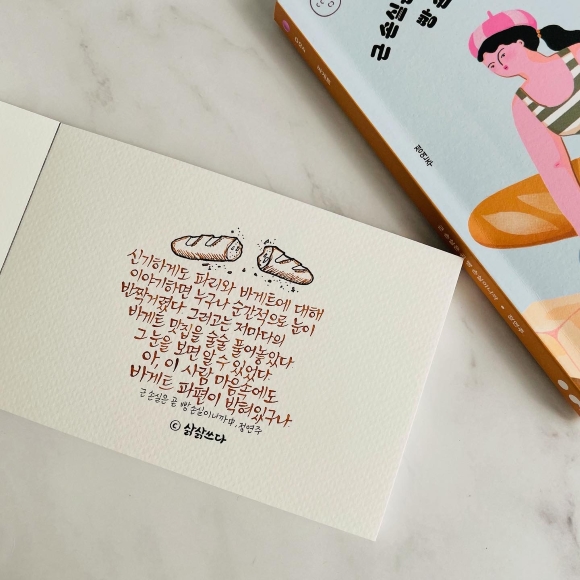 신기하게도 파리와 바게트에 대해
이야기하면 누구나 순간적으로 눈이
반짝거렸다. 그리고는 저마다의
바게트 맛집을 술술 풀어놓았다.
그 눈을 보면 알 수 있었다.
아, 이 사람 마음속에도
바게트 파편이 박혀있구나.
근 손실은 곧 빵 손실이니까 中, 정연주
ⓒ 삵삵쓰다
근 손실
빵 손